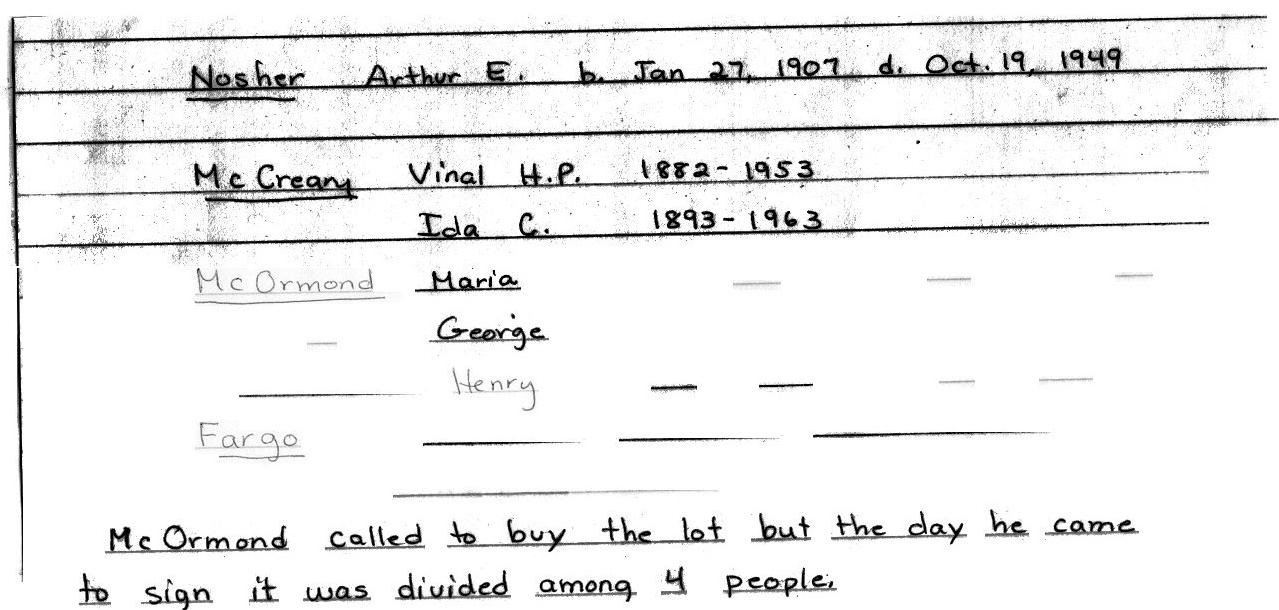 Nosher Arthur E. b. Jan 27, 1907 d. Oct. 19, 1949
McCreary Vinal H.P. 1882-1953
Ida C. 1893-1963
McOrmond Maria
George
Henry
Fargo
McOrmond called to buy the lot but the day he came
to sign it was divided among 4 people.